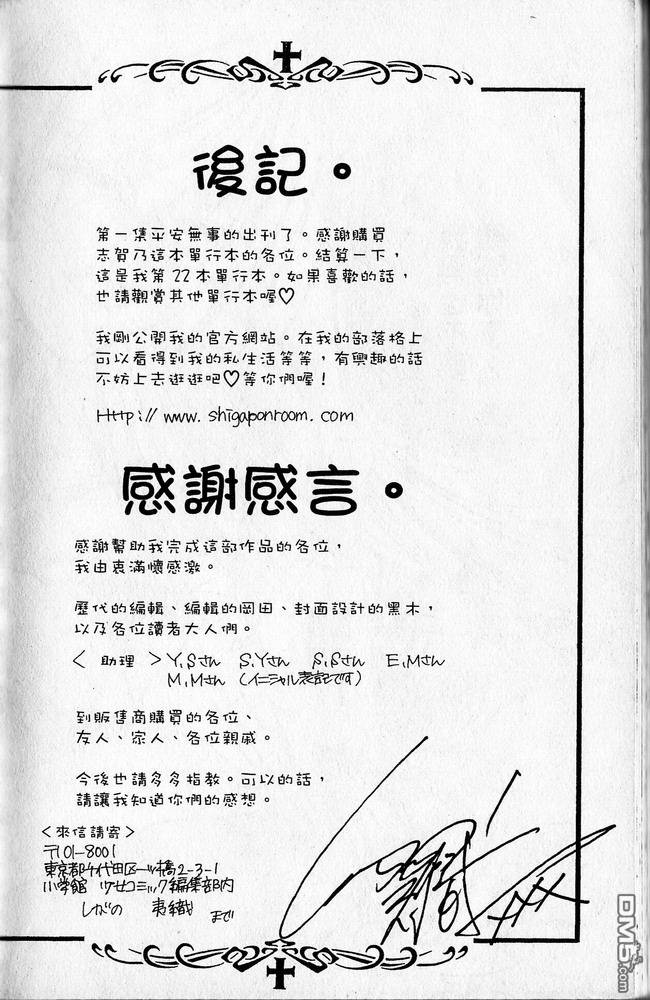 後記。
第一集平安無事的出刊了。感謝購買
志賀乃這本單行本的各位。結算一下，
這是我第22本單行本。如果喜歡的話，
也請觀賞其他單行本喔♡
我剛公開我的官方網站。在我的部落格上
可以看得到我的私生活等等，有興趣的話
不妨上去逛逛吧♡等你們喔！
Http://www.shigaponroom.com
感謝感言。
感謝幫助我完成這部作品的各位，
我由衷滿懷感激。
歷代的編輯、編輯的岡田、封面設計的黑木，
以及各位讀者大人們。
〈助理〉Y,Sさん S,Yさん S,Sさん E,Mさん
M,Mさん（イニシャル表記です）
到販售商購買的各位、
友人、家人、各位親戚。
今後也請多多指教。可以的話，
請讓我知道你們的感想。
〈來信請寄〉
〒101-8001
東京都千代田区一ッ橋2-3-1
小学館 少コミック編集部内
しがの 夷織 まで
DM5.com